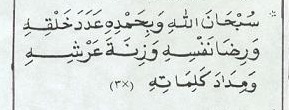 سُبْحَانَ اللهِ وَبِحَمْدِهِ عَدَدَ خَلْقِهِ
وَرِضَا نَفْسِهِ وَزِنَةَ عَرْشِهِ
وَمِدَادَ كَلِمَاتِهِ (٣×)